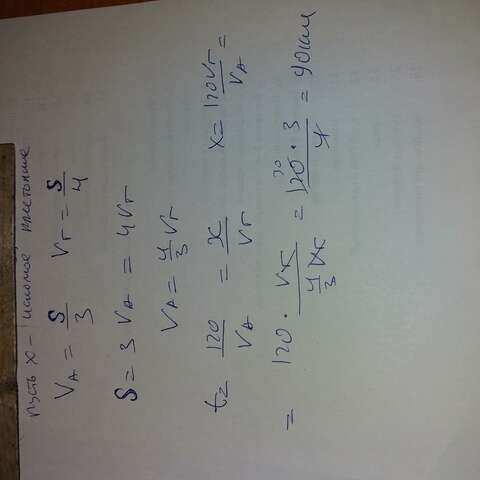 Пусть x - искомое расстояние
V_A = S/3   V_Г = S/4
S = 3 V_A = 4 V_Г
V_A = 4/3 V_Г
t = 120/V_A = x/V_Г   x = 120V_Г/V_A =
= 120 · V_Г / (4/3 V_Г) = 120 · 3 / 4 = 90 км
30